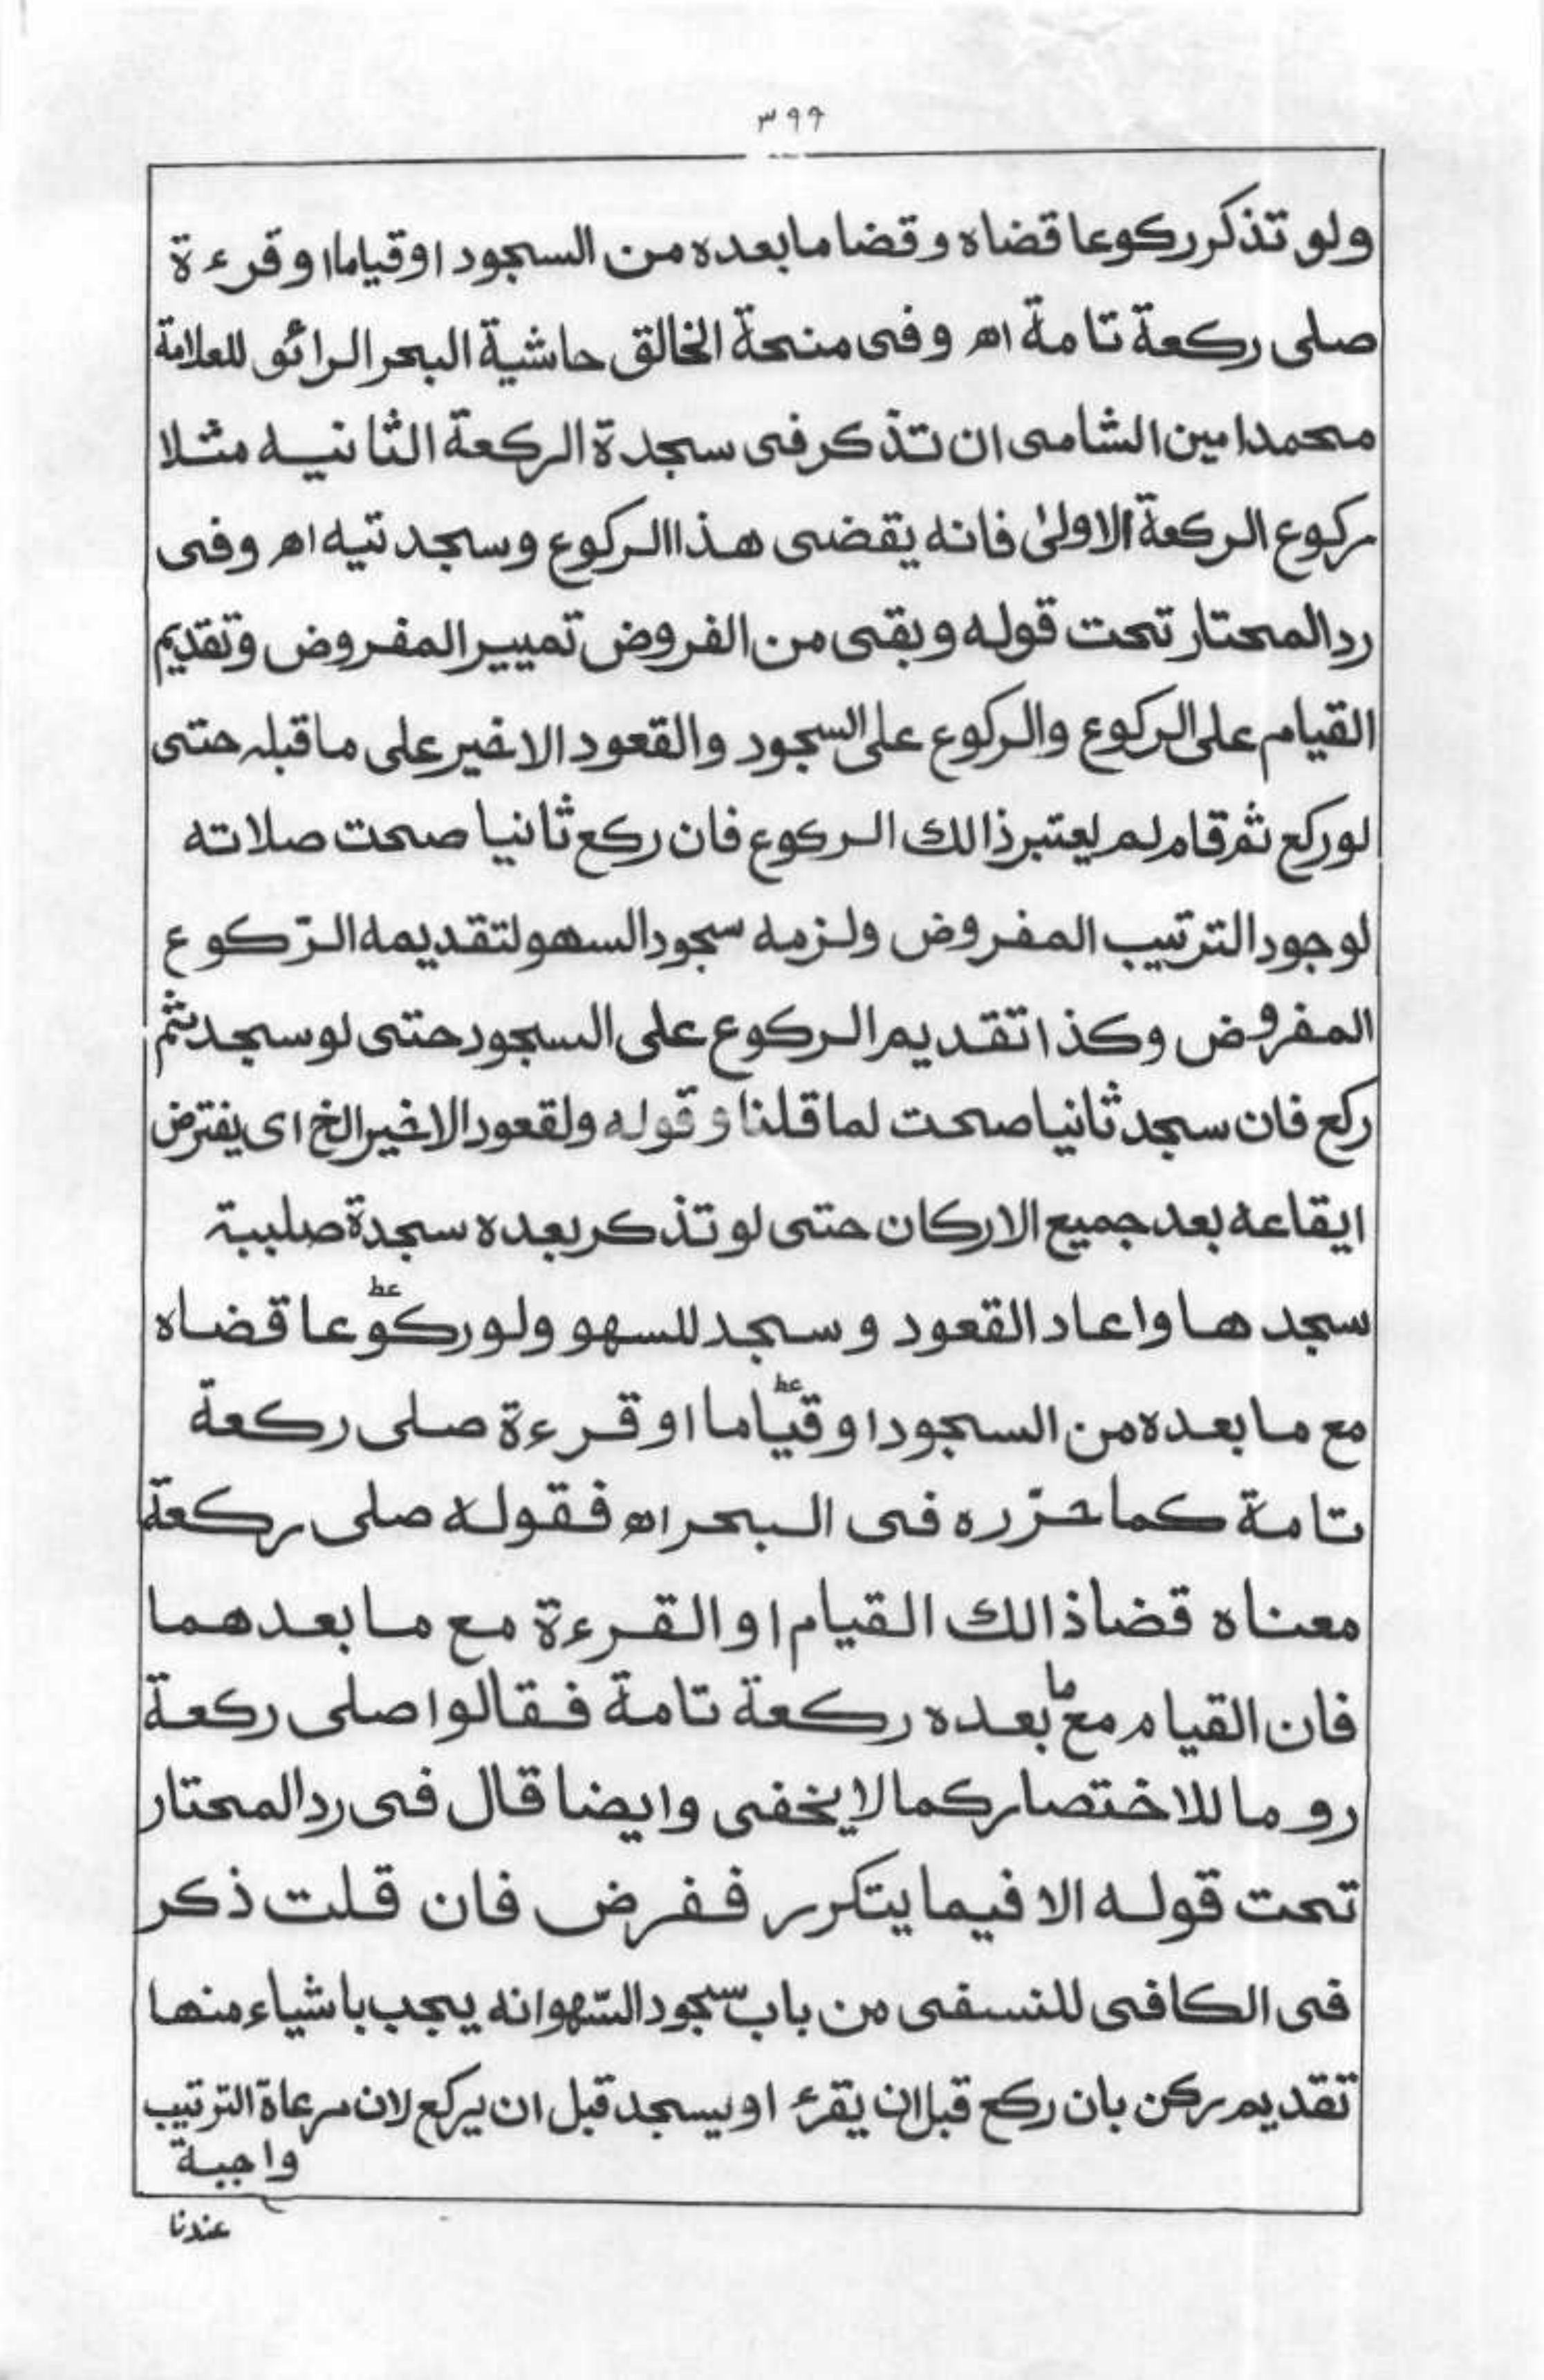 ٣٩٩
ولو تذكر ركوعا قضاه و قضا ما بعده من السجود او قياما او قرءة
صلى ركعة تامة اه وفى منحة الخالق حاشية البحر الرائق للعلامة
محمد امين الشامى ان تذكر فى سجدة الركعة الثانيه مثلا
ركوع الركعة الاولىٰ فانه يقضى هذا الركوع وسجدتيه اه وفى
رد المحتار تحت قوله وبقى من الفروض تمييز المفروض وتقديم
القيام على الركوع والركوع على السجود والقعود الاخير على ما قبله حتى
لو ركع ثم قام لم يعتبر ذالك الركوع فان ركع ثانيا صحت صلاته
لوجود الترتيب المفروض ولزمه سجود السهو لتقديمه الرّكوع
المفروض وكذا تقديم الركوع على السجود حتى لو سجد ثم
ركع فان سجد ثانيا صحت لما قلنا و قوله ولقعود الاخير الخ اى يفترض
ايقاعه بعد جميع الاركان حتى لو تذكر بعده سجدة صلبية
سجدها واعاد القعود و سجد للسهو ولو ركوعا قضاه
مع ما بعده من السجود او قياما او قرءة صلى ركعة
تامة كما حرّره فى البحر اه فقوله صلى ركعة
معناه قضا ذالك القيام او القرءة مع ما بعدهما
فان القيام مع ما بعده ركعة تامة فقالوا صلى ركعة
روما للاختصار كما لا يخفى وايضا قال فى رد المحتار
تحت قوله الا فيما يتكرر ففرض فان قلت ذكر
فى الكافى للنسفى من باب سجود السّهو انه يجب باشياء منها
تقديم ركن بان ركع قبل ان يقرء او يسجد قبل ان يركع لان مرعاة الترتيب
واجبة
عندنا